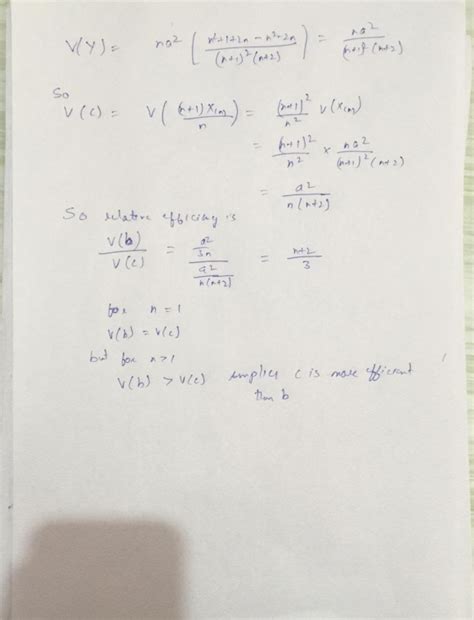 V(Y) = na² ( n²+1+2n - n²-2n / (n+1)²(n+2) ) = na² / (n+1)²(n+2)
So
V(c) = V( (n+1) X(n) / n ) = (n+1)² / n² V(X(n))
= (n+1)² / n² × na² / (n+1)²(n+2)
= a² / n(n+2)
So relative efficiency is
V(b) / V(c) = a²/3n / a²/n(n+2) = n+2 / 3
for n = 1
V(b) = V(c)
but for n>1
V(b) > V(c) implies c is more efficient
than b